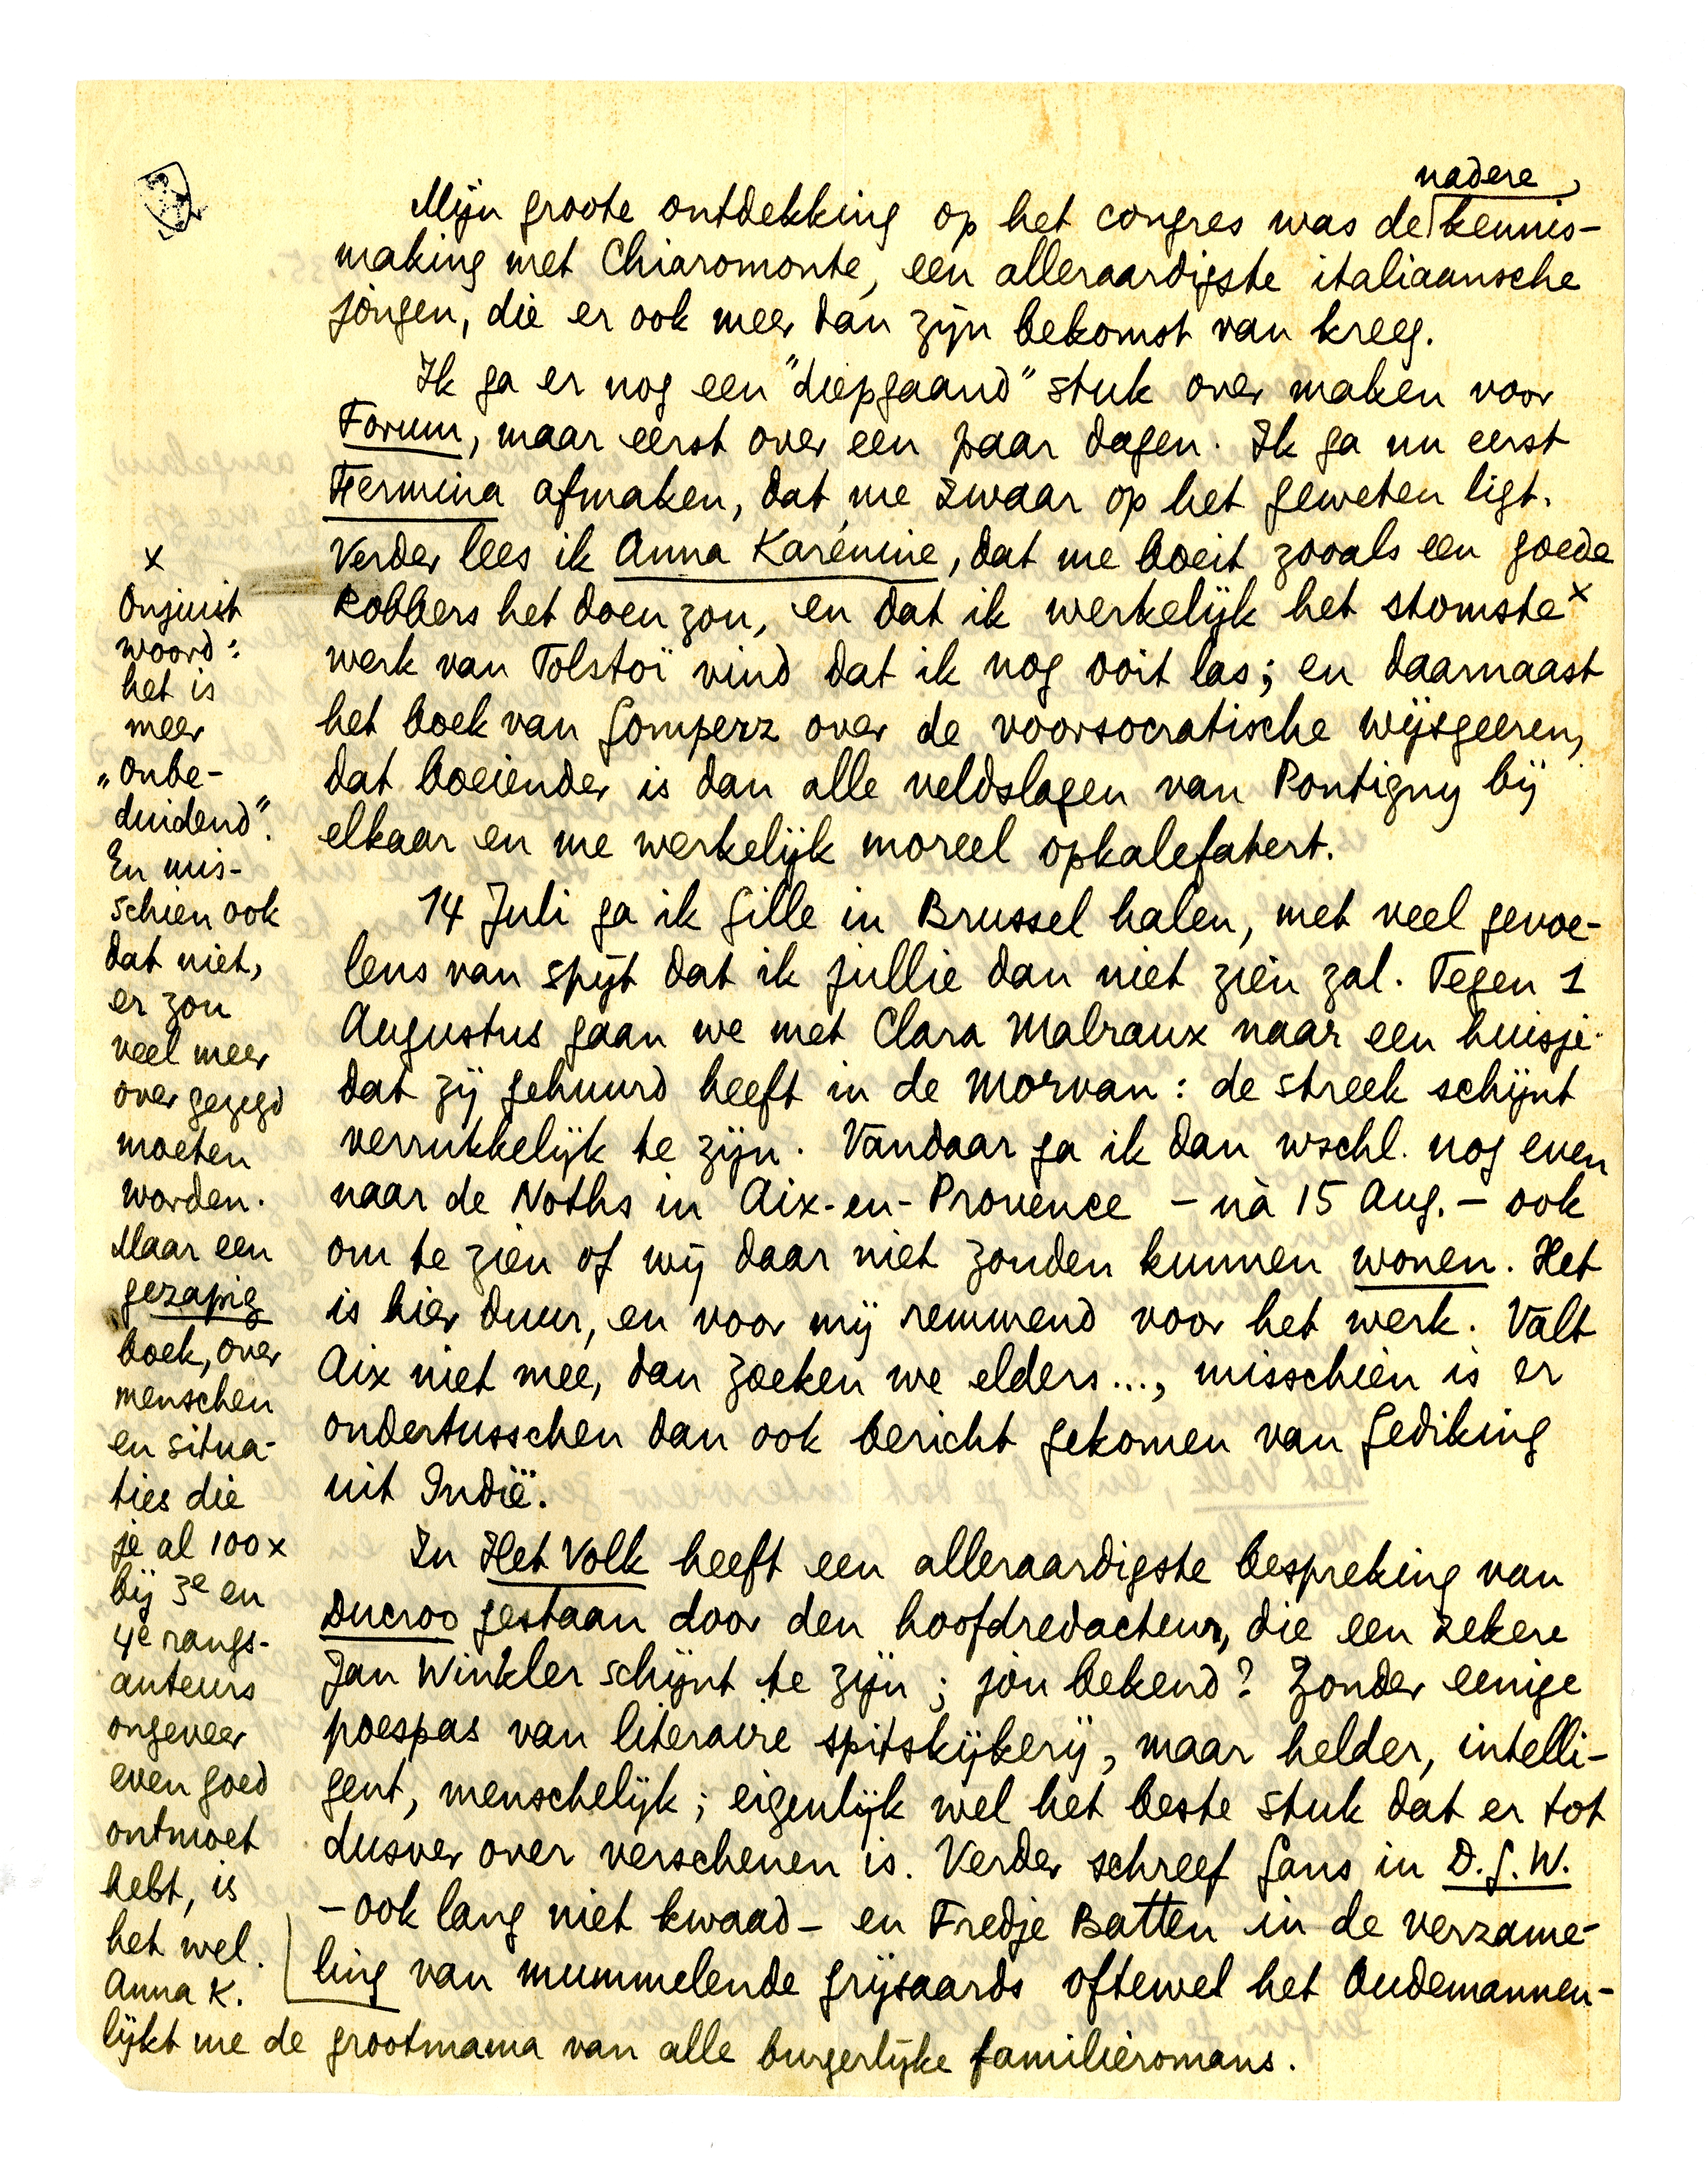 nadere
Mijn groote ontdekking op het congres was de kennis-
making met Chiaromonte, een alleraardigste italiaansche
jongen, die er ook meer dan zijn bekomst van kreeg.
Ik ga er nog een "diepgaand" stuk over maken voor
Forum, maar eerst over een paar dagen. Ik ga nu eerst
Hermina afmaken, dat me zwaar op het geweten ligt.
Verder lees ik Anna Karénine, dat me boeit zooals een goede
Robbers het doen zou, en dat ik werkelijk het stomste x
werk van Tolstoï vind dat ik nog ooit las; en daarnaast
het boek van Gomperz over de voorsocratische wijsgeeren,
dat boeiender is dan alle veldslagen van Pontigny bij
elkaar en me werkelijk moreel opkalefatert.
14 Juli ga ik Gille in Brussel halen, met veel gevoe-
lens van spijt dat ik jullie dan niet zien zal. Tegen 1
Augustus gaan we met Clara Malraux naar een huisje
dat zij gehuurd heeft in de Morvan: de streek schijnt
verrukkelijk te zijn. Vandaar ga ik dan wschl. nog even
naar de Noths in Aix-en-Provence - nà 15 Aug. - ook
om te zien of wij daar niet zouden kunnen wonen. Het
is hier duur, en voor mij remmend voor het werk. Valt
Aix niet mee, dan zoeken we elders..., misschien is er
ondertusschen dan ook bericht gekomen van Gediking
uit Indië.
In Het Volk heeft een alleraardigste bespreking van
Ducroo gestaan door den hoofdredacteur, die een zekere
Jan Winkler schijnt te zijn; jòu bekend? Zonder eenige
poespas van literaire spitskijkerij, maar helder, intelli-
gent, menschelijk; eigenlijk wel het beste stuk dat er tot
dusver over verschenen is. Verder schreef Gans in D.G.W.
- ook lang niet kwaad - en Fredje Batten in de verzame-
ling van mummelende grijsaards oftewel het Oudemannen-
x
Onjuist
woord:
het is
meer
„Onbe-
duidend".
En mis-
schien ook
dat niet,
er zou
veel meer
over gezegd
moeten
worden.
Maar een
gezapig
boek, over
menschen
en situa-
ties die
je al 100 x
bij 3e en
4e rangs-
auteurs
ongeveer
even goed
ontmoet
hebt, is
het wel.
Anna K.
lijkt me de grootmama van alle burgerlijke familieromans.